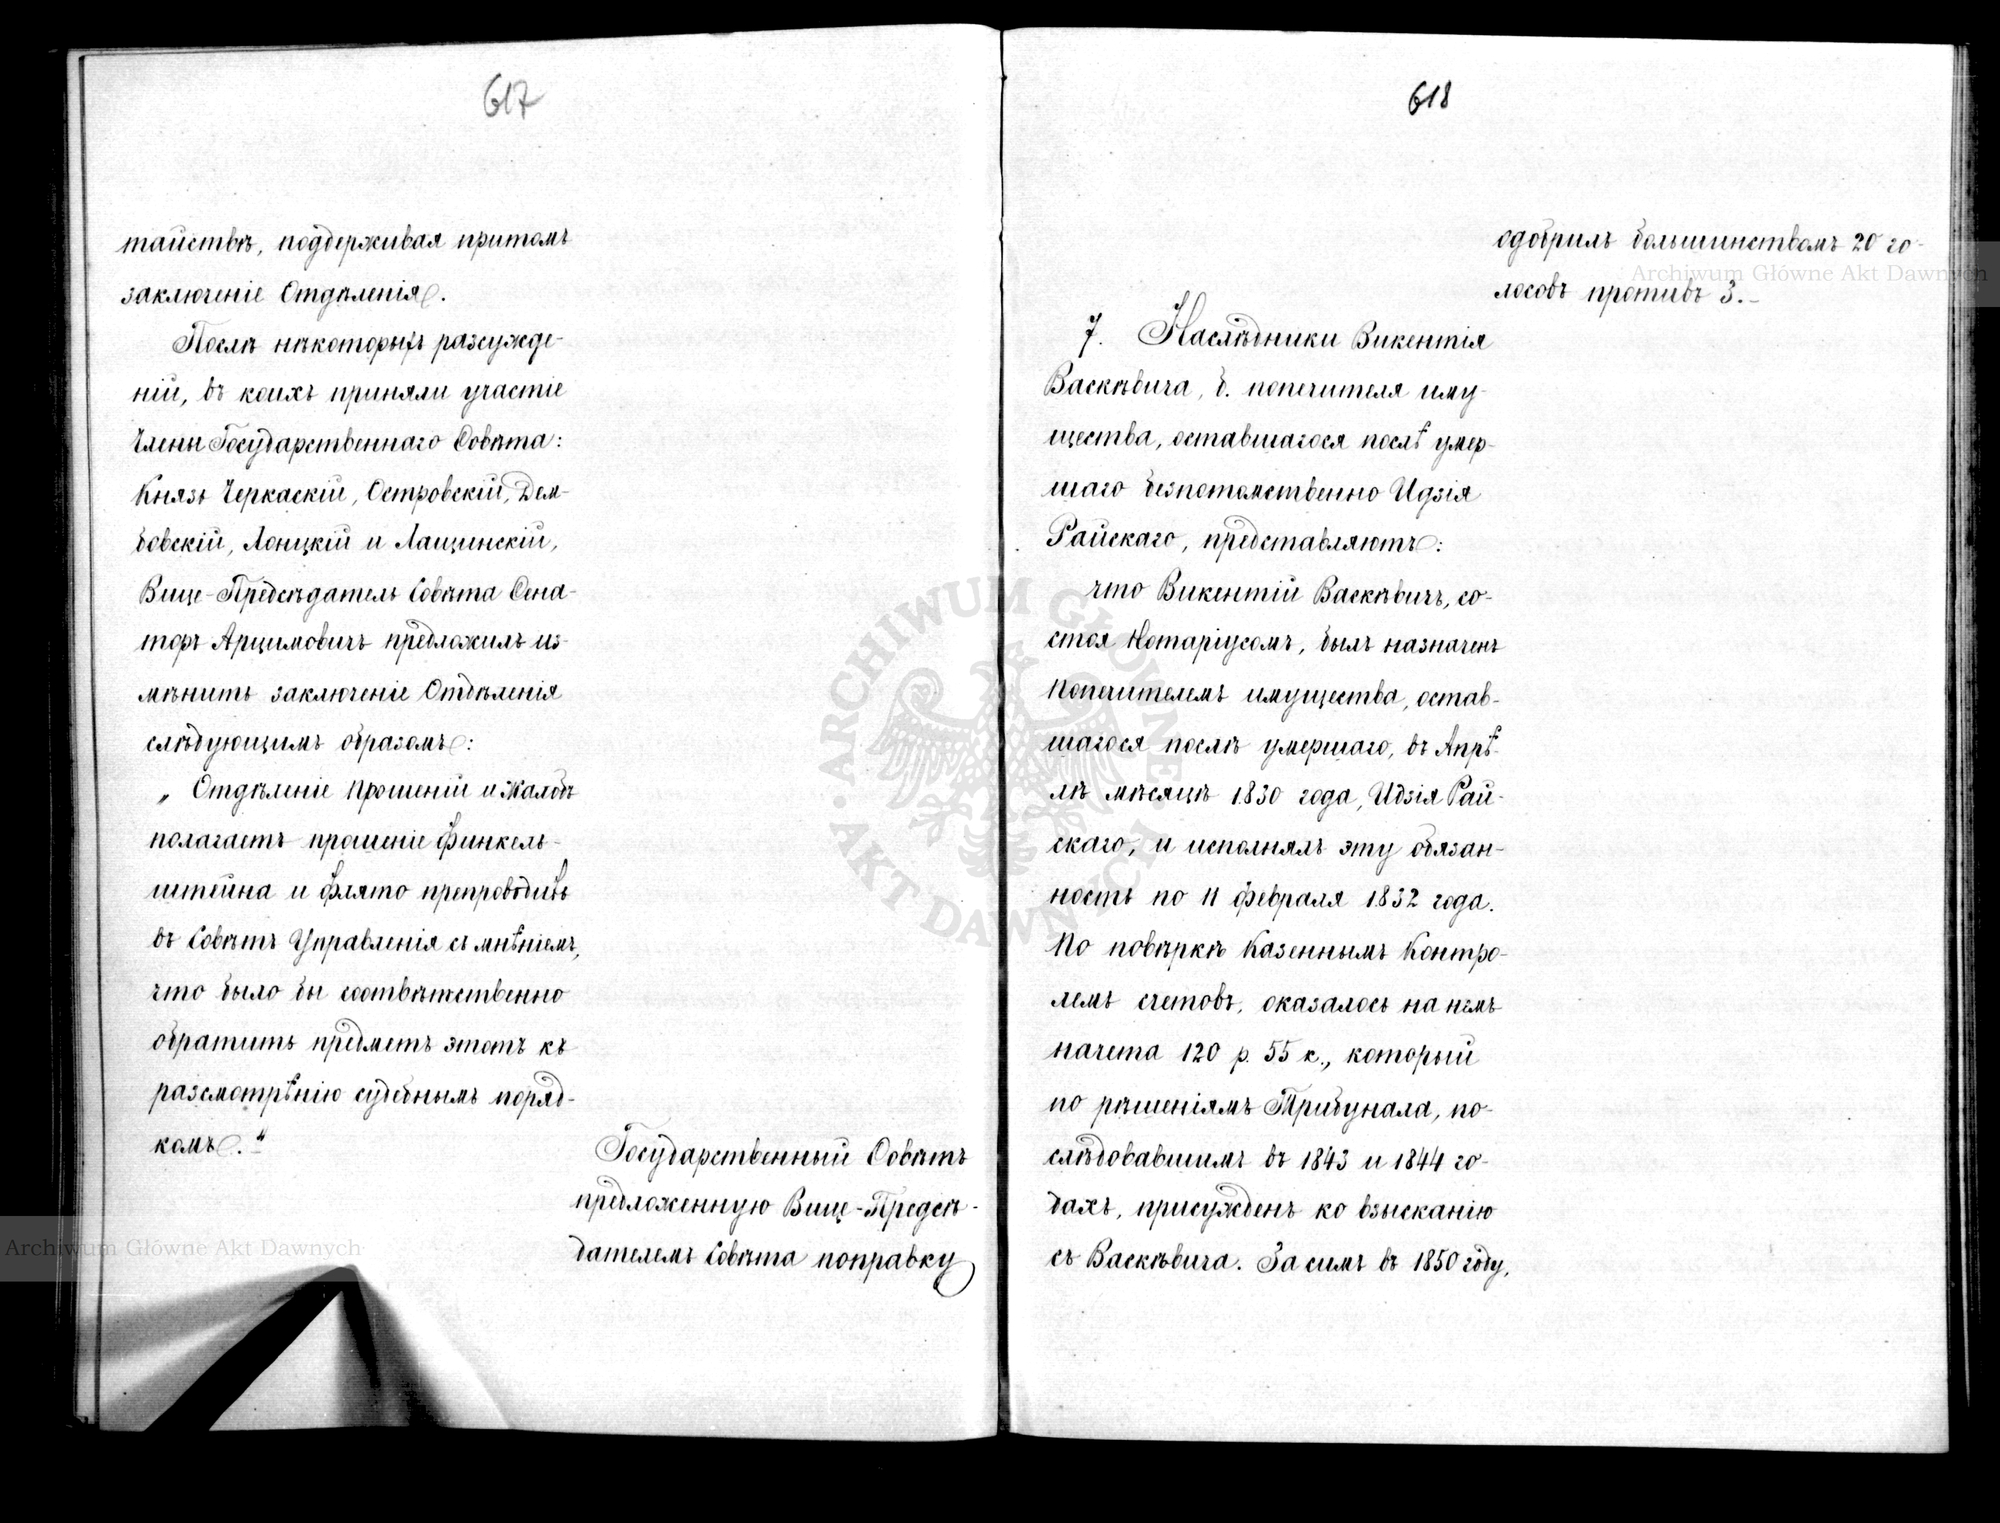 617
тайствѣ, поддерживая притомъ
заключеніе Отдѣленія.
Послѣ нѣкоторыхъ разсужде-
ній, въ коихъ приняли участіе
Члены Государственнаго Совѣта:
Князь Черкаскій, Островскій, Дем-
бовскій, Лонцкій и Лащинскій,
Вице-Предсѣдатель Совѣта Сена-
торъ Арцимовичъ предложилъ из-
мѣнить заключеніе Отдѣленія
слѣдующимъ образомъ:
„Отдѣленіе Прошеній и Жалобъ
полагаетъ прошеніе Финкель-
штейна и Флято препроводить
въ Совѣтъ Управленія съ мнѣніемъ,
что было бы соотвѣтственно
обратить предметъ этотъ къ
разсмотрѣнію судебнымъ поряд-
комъ."
Государственный Совѣтъ
предложенную Вице-Предсѣ-
дателемъ Совѣта поправку
618
одобрилъ большинствомъ 20 го-
лосовъ противъ 3.-
7. Наслѣдники Викентія
Васкѣвича, б. попечителя иму-
щества, оставшагося послѣ умер-
шаго безпотомственно Идзія
Райскаго, представляютъ:
что Викентій Васкѣвичъ, со-
стоя Нотаріусомъ, былъ назначенъ
Попечителемъ имущества, остав-
шагося послѣ умершаго, въ Апрѣ-
лѣ мѣсяцѣ 1830 года, Идзія Рай-
скаго, и исполнялъ эту обязан-
ность по 11 Февраля 1832 года.
По повѣркѣ Казеннымъ Контро-
лемъ счетовъ, оказалось на немъ
начета 120 р. 55 к., который
по рѣшеніямъ Трибунала, по-
слѣдовавшимъ въ 1843 и 1844 го-
дахъ, присужденъ ко взысканію
съ Васкѣвича. За симъ въ 1850 году,
Archiwum Główne Akt Dawnych
Archiwum Główne Akt Dawnych
ARCHIWUM GŁÓWNE AKT DAWNYCH